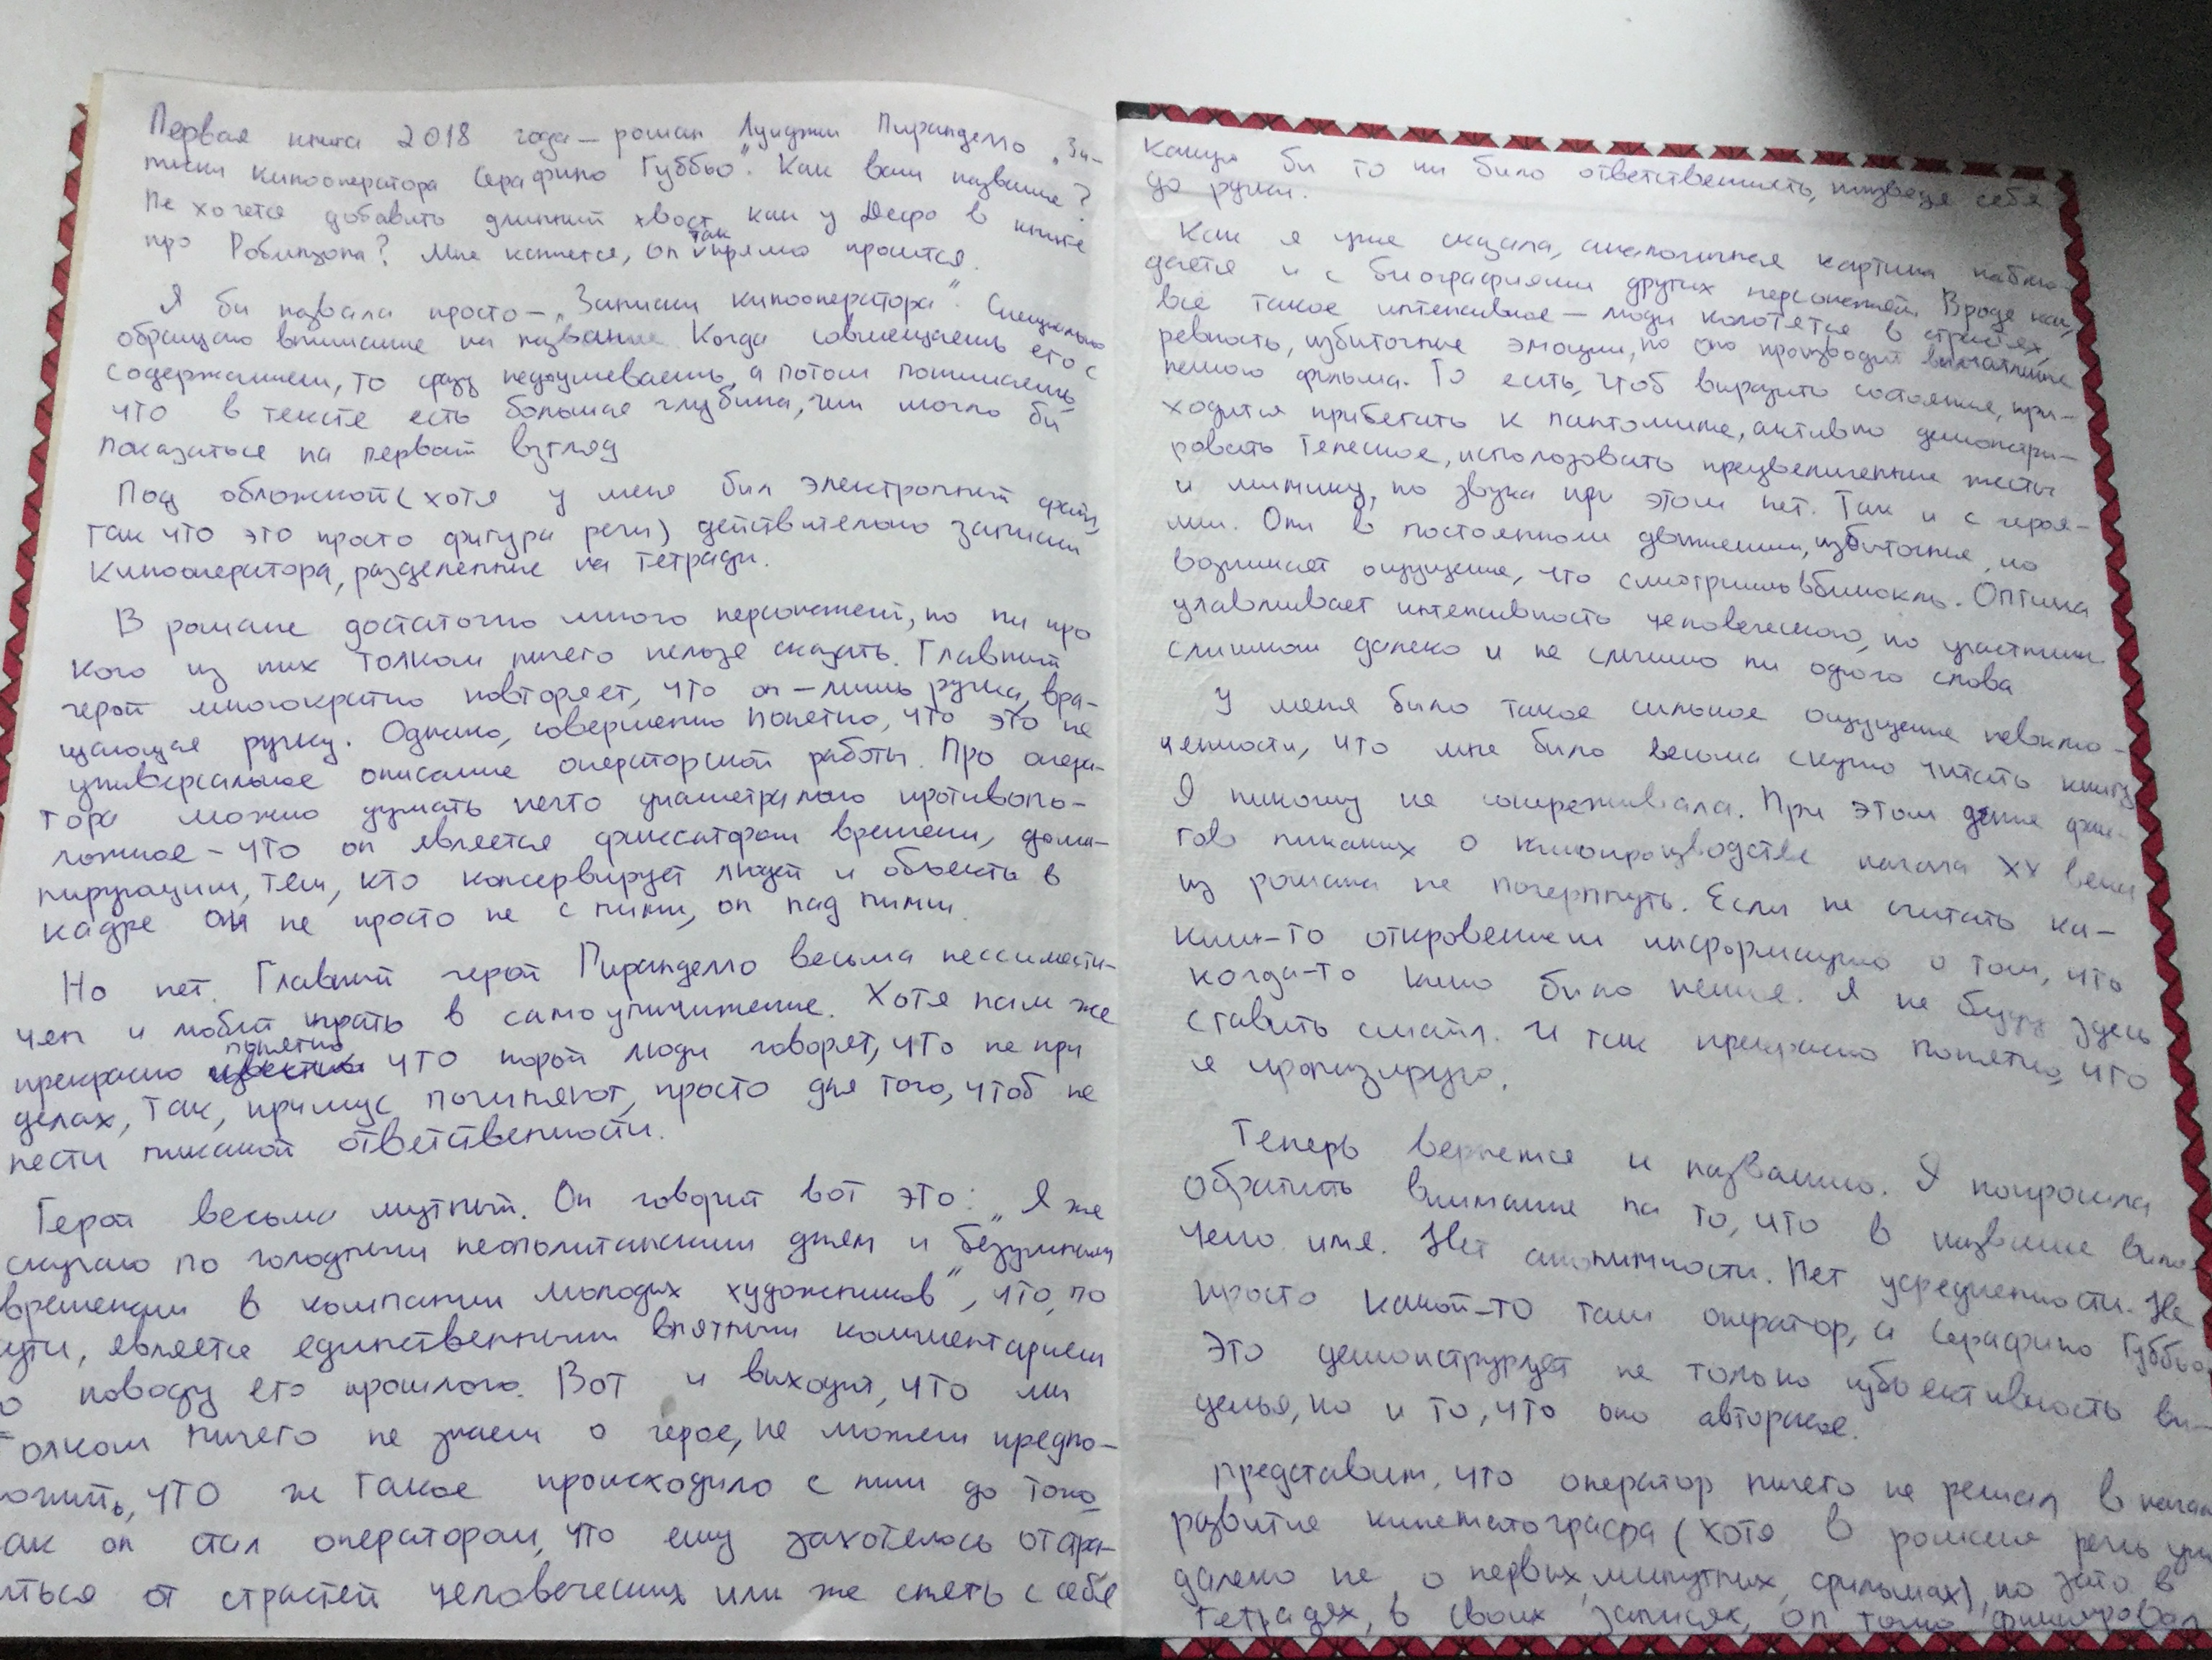 Первая книга 2018 года – роман Луиджи Пиранделло „За-
писки кинооператора Серафино Губбьо". Как вам название?
Не хочется добавить длинный хвост как у Дефо в книге
про Робинзона? Мне кажется, он так прямо просится.
Я бы назвала просто – „Записки кинооператора". Специально
обращаю внимание на название. Когда совмещаешь его с
содержанием, то сразу недоумеваешь, а потом понимаешь,
что в тексте есть большая глубина, чем могло бы
показаться на первый взгляд
Под обложкой (хотя у меня был электронный файл,
так что это просто фигура речи) действительно записки
кинооператора, разделенные на тетради.
В романе достаточно много персонажей, но ни про
кого из них толком ничего нельзя сказать. Главный
герой многократно повторяет, что он – лишь ручка, вра-
щающая ручку. Однако, совершенно понятно, что это не
универсальное описание операторской работы. Про опера-
тора можно думать нечто диаметрально противопо-
ложное – что он является фиксатором времени, доми-
нирующим, тем, кто консервирует людей и объекты в
кадре он не просто не с ними, он над ними.
Но нет. Главный герой Пиранделло весьма пессимисти-
чен и любит играть в самоуничижение. Хотя нам же
прекрасно понятно что порой люди говорят, что не при
делах, так, примус починяют, просто для того, чтоб не
нести никакой ответственности.
Герой весьма мутный. Он говорит вот это: „Я же
скучаю по голодным неополитанским дням и безумным
временам в компании молодых художников", что, по
сути, является единственным внятным комментарием
по поводу его прошлого. Вот и выходит, что мы
толком ничего не знаем о герое, не можем предпо-
ложить, что же такое происходило с ним до того
как он стал оператором, что ему захотелось отстра-
ниться от страстей человеческих или же снять с себя
какую бы то ни было ответственность, низведя себя
до ручки.
Как я уже сказала, аналогичная картина наблю-
дается и с биографиями других персонажей. Вроде как,
все такое интенсивное – люди колотятся в страстях,
ревность, избыточные эмоции, но оно производит впечатление
немого фильма. То есть, чтоб выразить состояние, при-
ходится прибегать к пантомиме, активно демонстри-
ровать телесное, использовать преувеличенные жесты
и мимику, но звука при этом нет. Так и с героя-
ми. Они в постоянном движении, избыточные, но
возникает ощущение, что смотришь в бинокль. Оптика
улавливает интенсивность человеческого, но участники
слишком далеко и не слышно ни одного слова
У меня было такое сильное ощущение невклю-
ченности, что мне было весьма скучно читать книгу
Я никому не сопереживала. При этом даже фак-
тов никаких о кинопроизводстве начала XX века
из романа не почерпнуть. Если не считать ка-
ким-то откровением информацию о том, что
когда-то кино было немое. Я не буду здесь
ставить смайл. И так прекрасно понятно, что
я иронизирую.
Теперь вернемся к названию. Я попросила
обратить внимание на то, что в название вклю-
чено имя. Нет анонимности. Нет усредненности. Не
просто какой-то там оператор, а Серафино Губбьо
Это демонстрирует не только субъективность ви-
денья, но и то, что оно авторское.
Представим, что оператор ничего не решал в начале
развития кинематографа (хотя в романе речь уже
далеко не о первых, минутных, фильмах), но зато в
тетрадях, в своих записях, он точно фиксировал